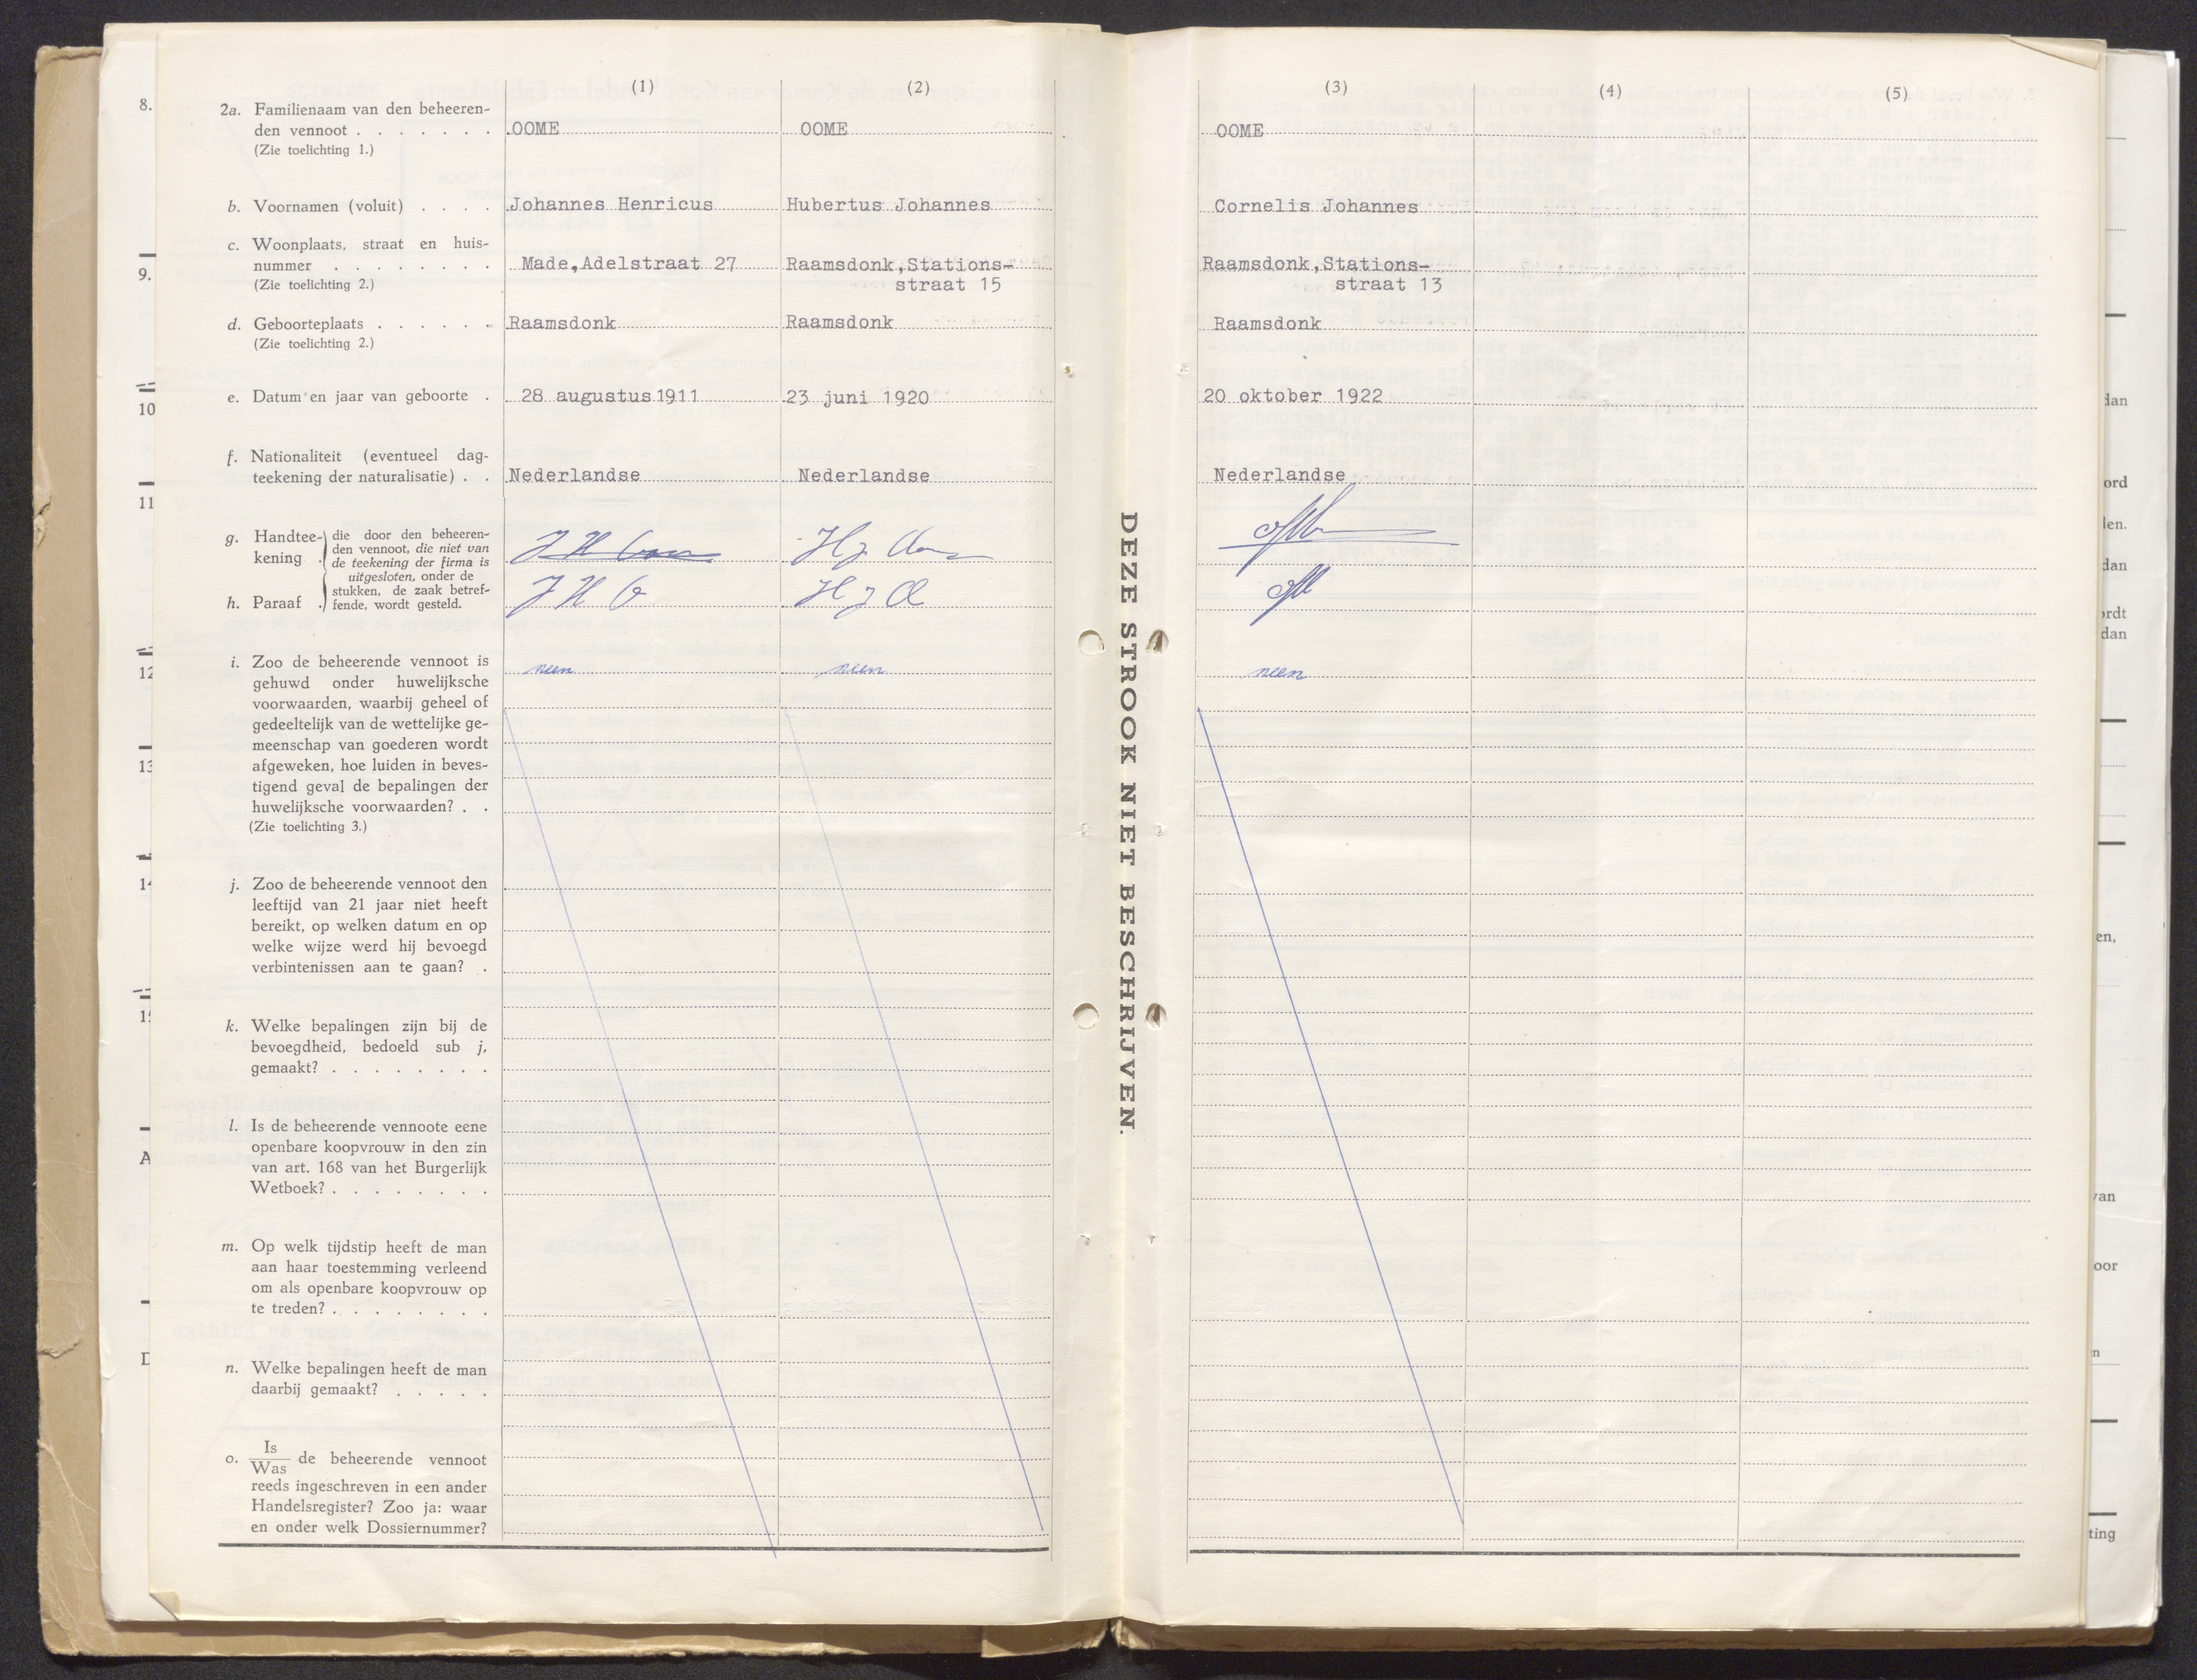 (1) (2)
2a. Familienaam van den beheeren-
den vennoot . . . . . . . OOME OOME
(Zie toelichting 1.)
b. Voornamen (voluit) . . . . Johannes Henricus Hubertus Johannes
c. Woonplaats, straat en huis-
nummer . . . . . . . . Made, Adelstraat 27 Raamsdonk, Stations-
(Zie toelichting 2.) straat 15
d. Geboorteplaats . . . . . . Raamsdonk Raamsdonk
(Zie toelichting 2.)
e. Datum en jaar van geboorte . 28 augustus 1911 23 juni 1920
f. Nationaliteit (eventueel dag-
teekening der naturalisatie) . . Nederlandse Nederlandse
g. Handtee-
kening .
h. Paraaf .
die door den beheeren-
den vennoot, die niet van
de teekening der firma is
uitgesloten, onder de
stukken, de zaak betref-
fende, wordt gesteld.
i. Zoo de beheerende vennoot is neen neen
gehuwd onder huwelijksche
voorwaarden, waarbij geheel of
gedeeltelijk van de wettelijke ge-
meenschap van goederen wordt
afgeweken, hoe luiden in beves-
tigend geval de bepalingen der
huwelijksche voorwaarden? . .
(Zie toelichting 3.)
j. Zoo de beheerende vennoot den
leeftijd van 21 jaar niet heeft
bereikt, op welken datum en op
welke wijze werd hij bevoegd
verbintenissen aan te gaan? .
k. Welke bepalingen zijn bij de
bevoegdheid, bedoeld sub j,
gemaakt? . . . . . . . .
l. Is de beheerende vennoote eene
openbare koopvrouw in den zin
van art. 168 van het Burgerlijk
Wetboek? . . . . . . . .
m. Op welk tijdstip heeft de man
aan haar toestemming verleend
om als openbare koopvrouw op
te treden? . . . . . . . .
n. Welke bepalingen heeft de man
daarbij gemaakt? . . . . .
o. Is
Was de beheerende vennoot
reeds ingeschreven in een ander
Handelsregister? Zoo ja: waar
en onder welk Dossiernummer?
8.
9.
10
11
12
13
14
A
DEZE STROOK NIET BESCHRIJVEN.
(3) (4) (5)
OOME
Cornelis Johannes
Raamsdonk, Stations-
straat 13
Raamsdonk
20 oktober 1922
Nederlandse
neen
dan
ord
len.
dan
ordt
dan
en,
van
oor
n
ting